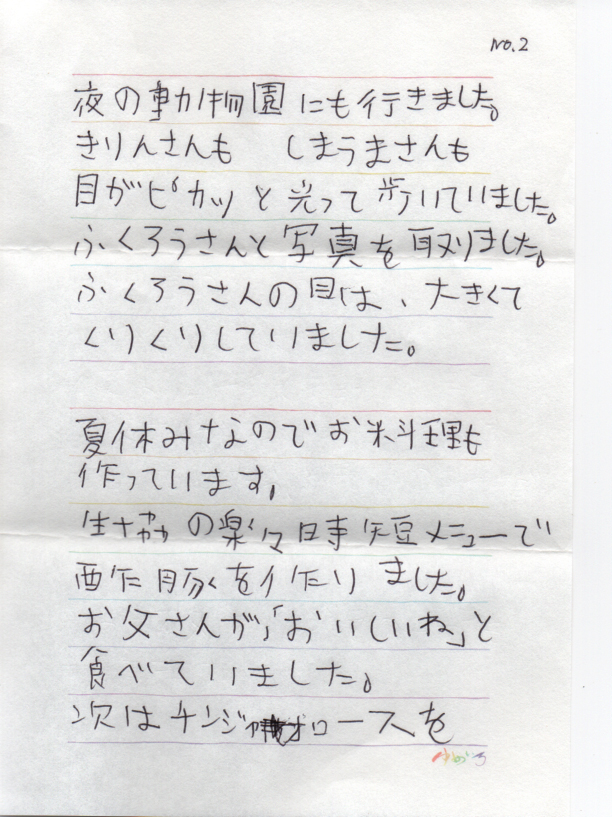 No.2
夜の動物園にも行きました。
きりんさんも しまうまさんも
目がピカッと光って歩いていました。
ふくろうさんと写真を取りました。
ふくろうさんの目は、大きくて
くりくりしていました。
夏休みなのでお料理も
作っています。
生協の楽々時短メニューで
酢豚を作りました。
お父さんが、「おいしいね」と
食べていました。
次はチンジャオロースを